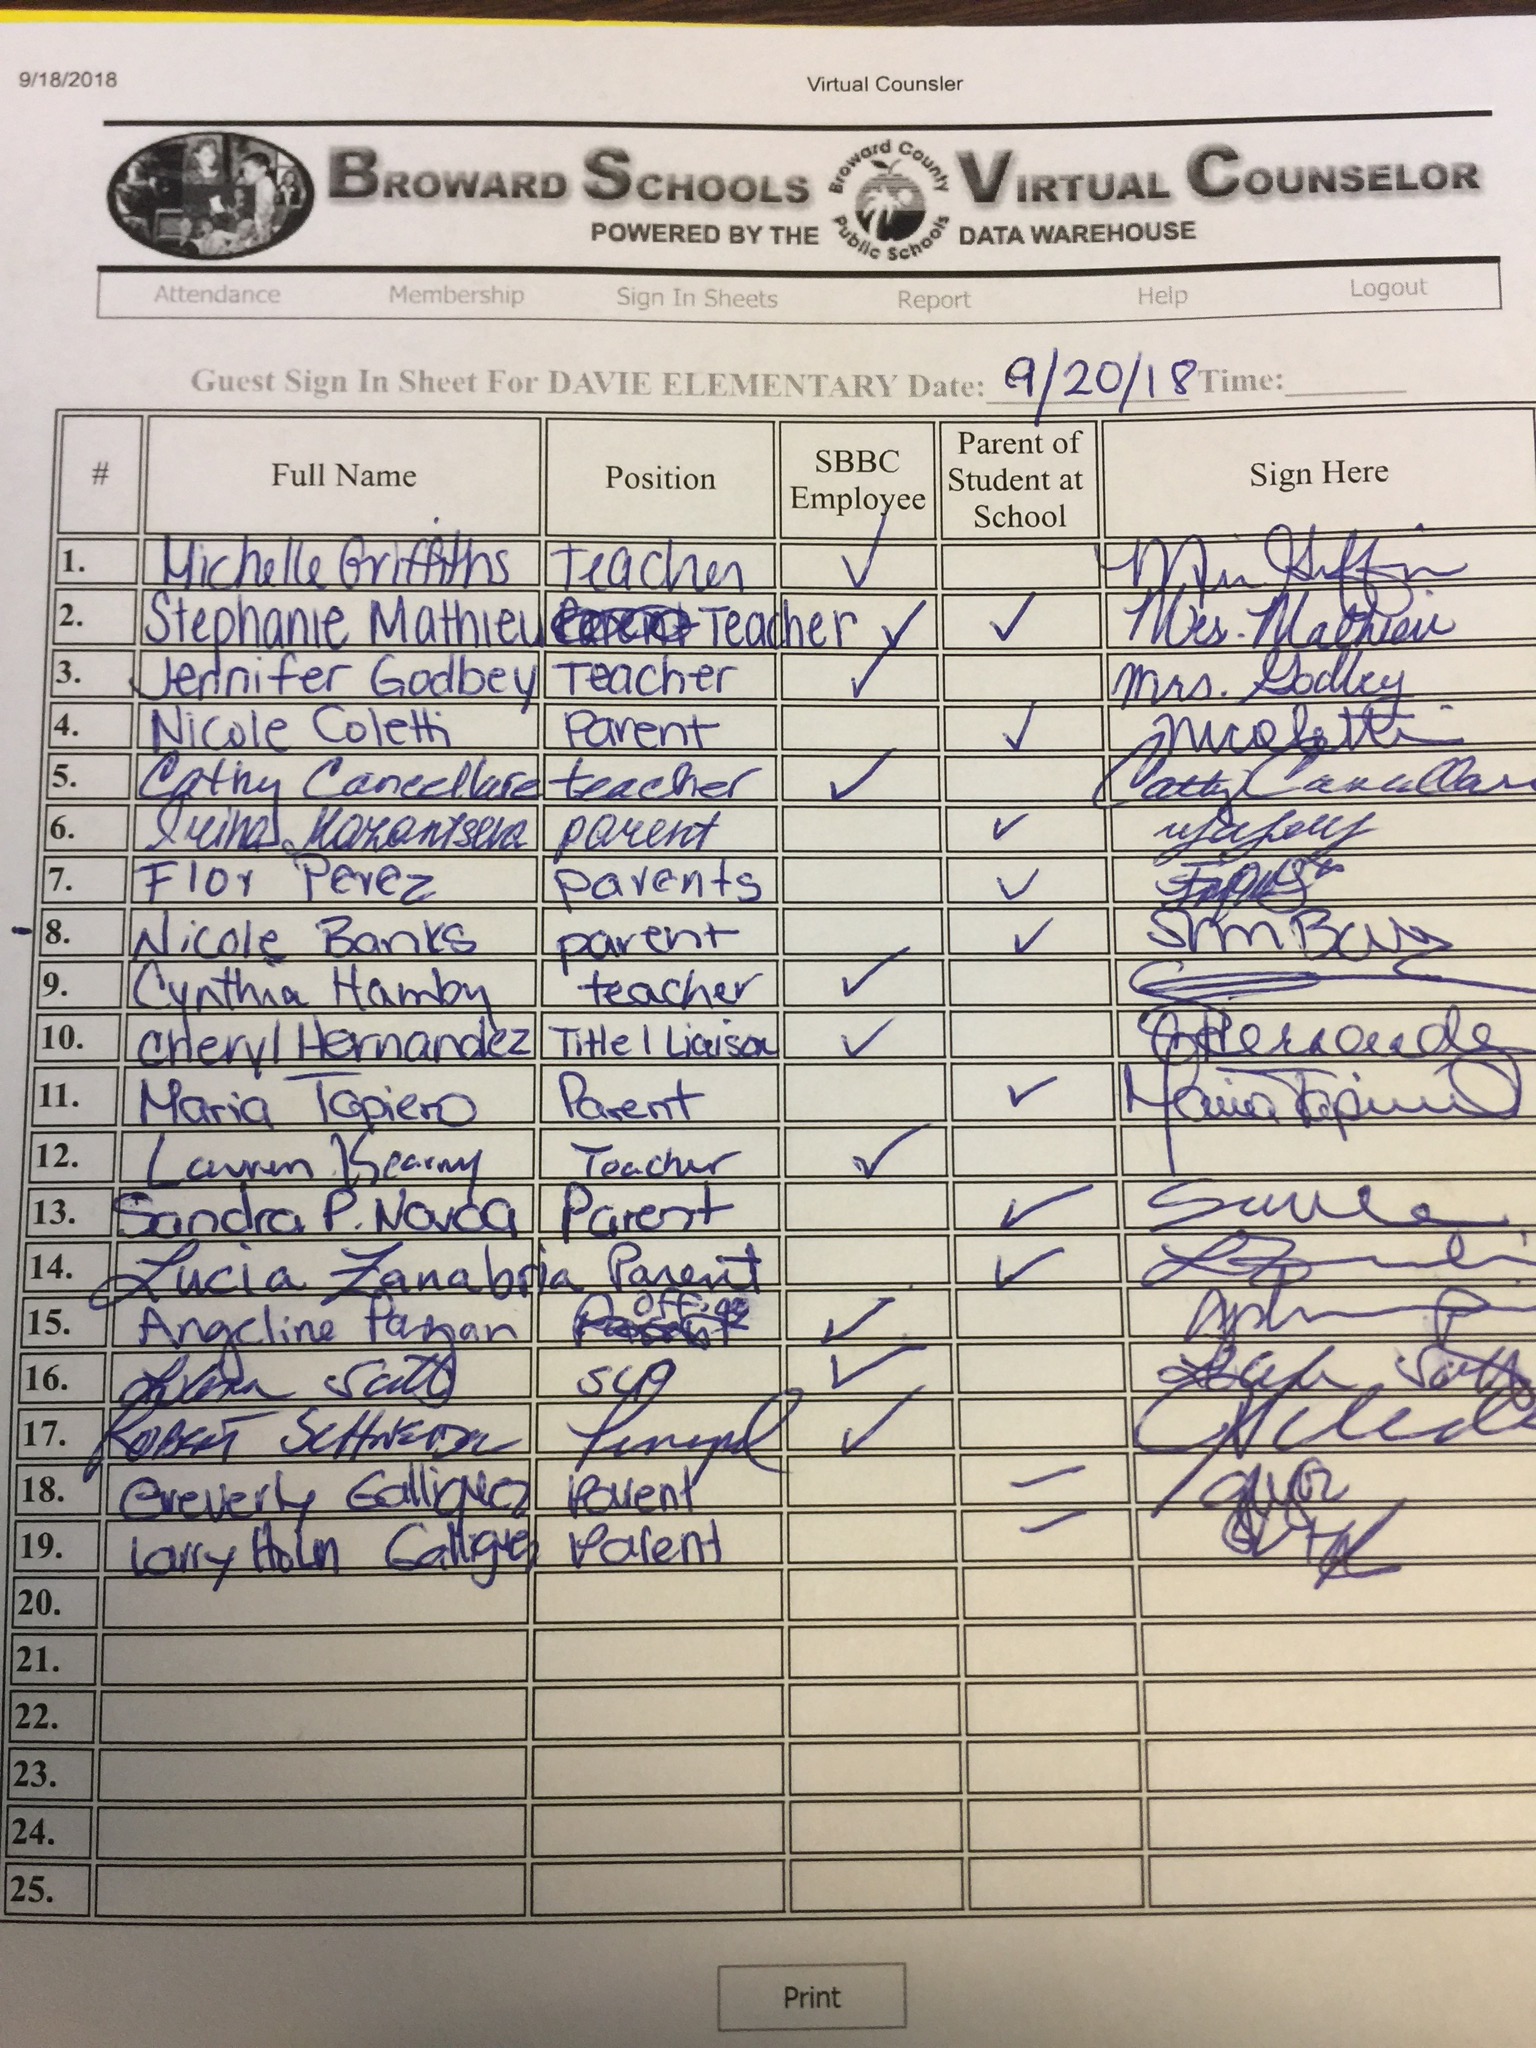 9/18/2018 Virtual Counsler
BROWARD SCHOOLS Broward County Public Schools VIRTUAL COUNSELOR
POWERED BY THE DATA WAREHOUSE
Attendance Membership Sign In Sheets Report Help Logout
Guest Sign In Sheet For DAVIE ELEMENTARY Date: 9/20/18 Time:
# Full Name Position SBBC Employee Parent of Student at School Sign Here
1. Michelle Griffiths Teacher ✓
2. Stephanie Mathieu Teacher ✓ ✓ Mrs. Mathieu
3. Jennifer Godbey Teacher ✓ Mrs. Godbey
4. Nicole Coletti Parent ✓
5. Cathy Cancellare teacher ✓ Cathy Cancellare
6. Irina Kazantseva parent ✓
7. Flor Perez parents ✓
8. Nicole Banks parent ✓
9. Cynthia Hamby teacher ✓
10. Cheryl Hernandez Title 1 Liaison ✓
11. Maria Tapiero Parent ✓ Maria Tapiero
12. Lauren Kearny Teacher ✓
13. Sandra P. Novoa Parent ✓
14. Lucia Zanabria Parent ✓
15. Angeline Pagan Office ✓
16. ✓
17. Robert Schneider Principal ✓
18. Greverly Galliquez Parent
19. Larry Holm Galligues Parent
20.
21.
22.
23.
24.
25.
Print